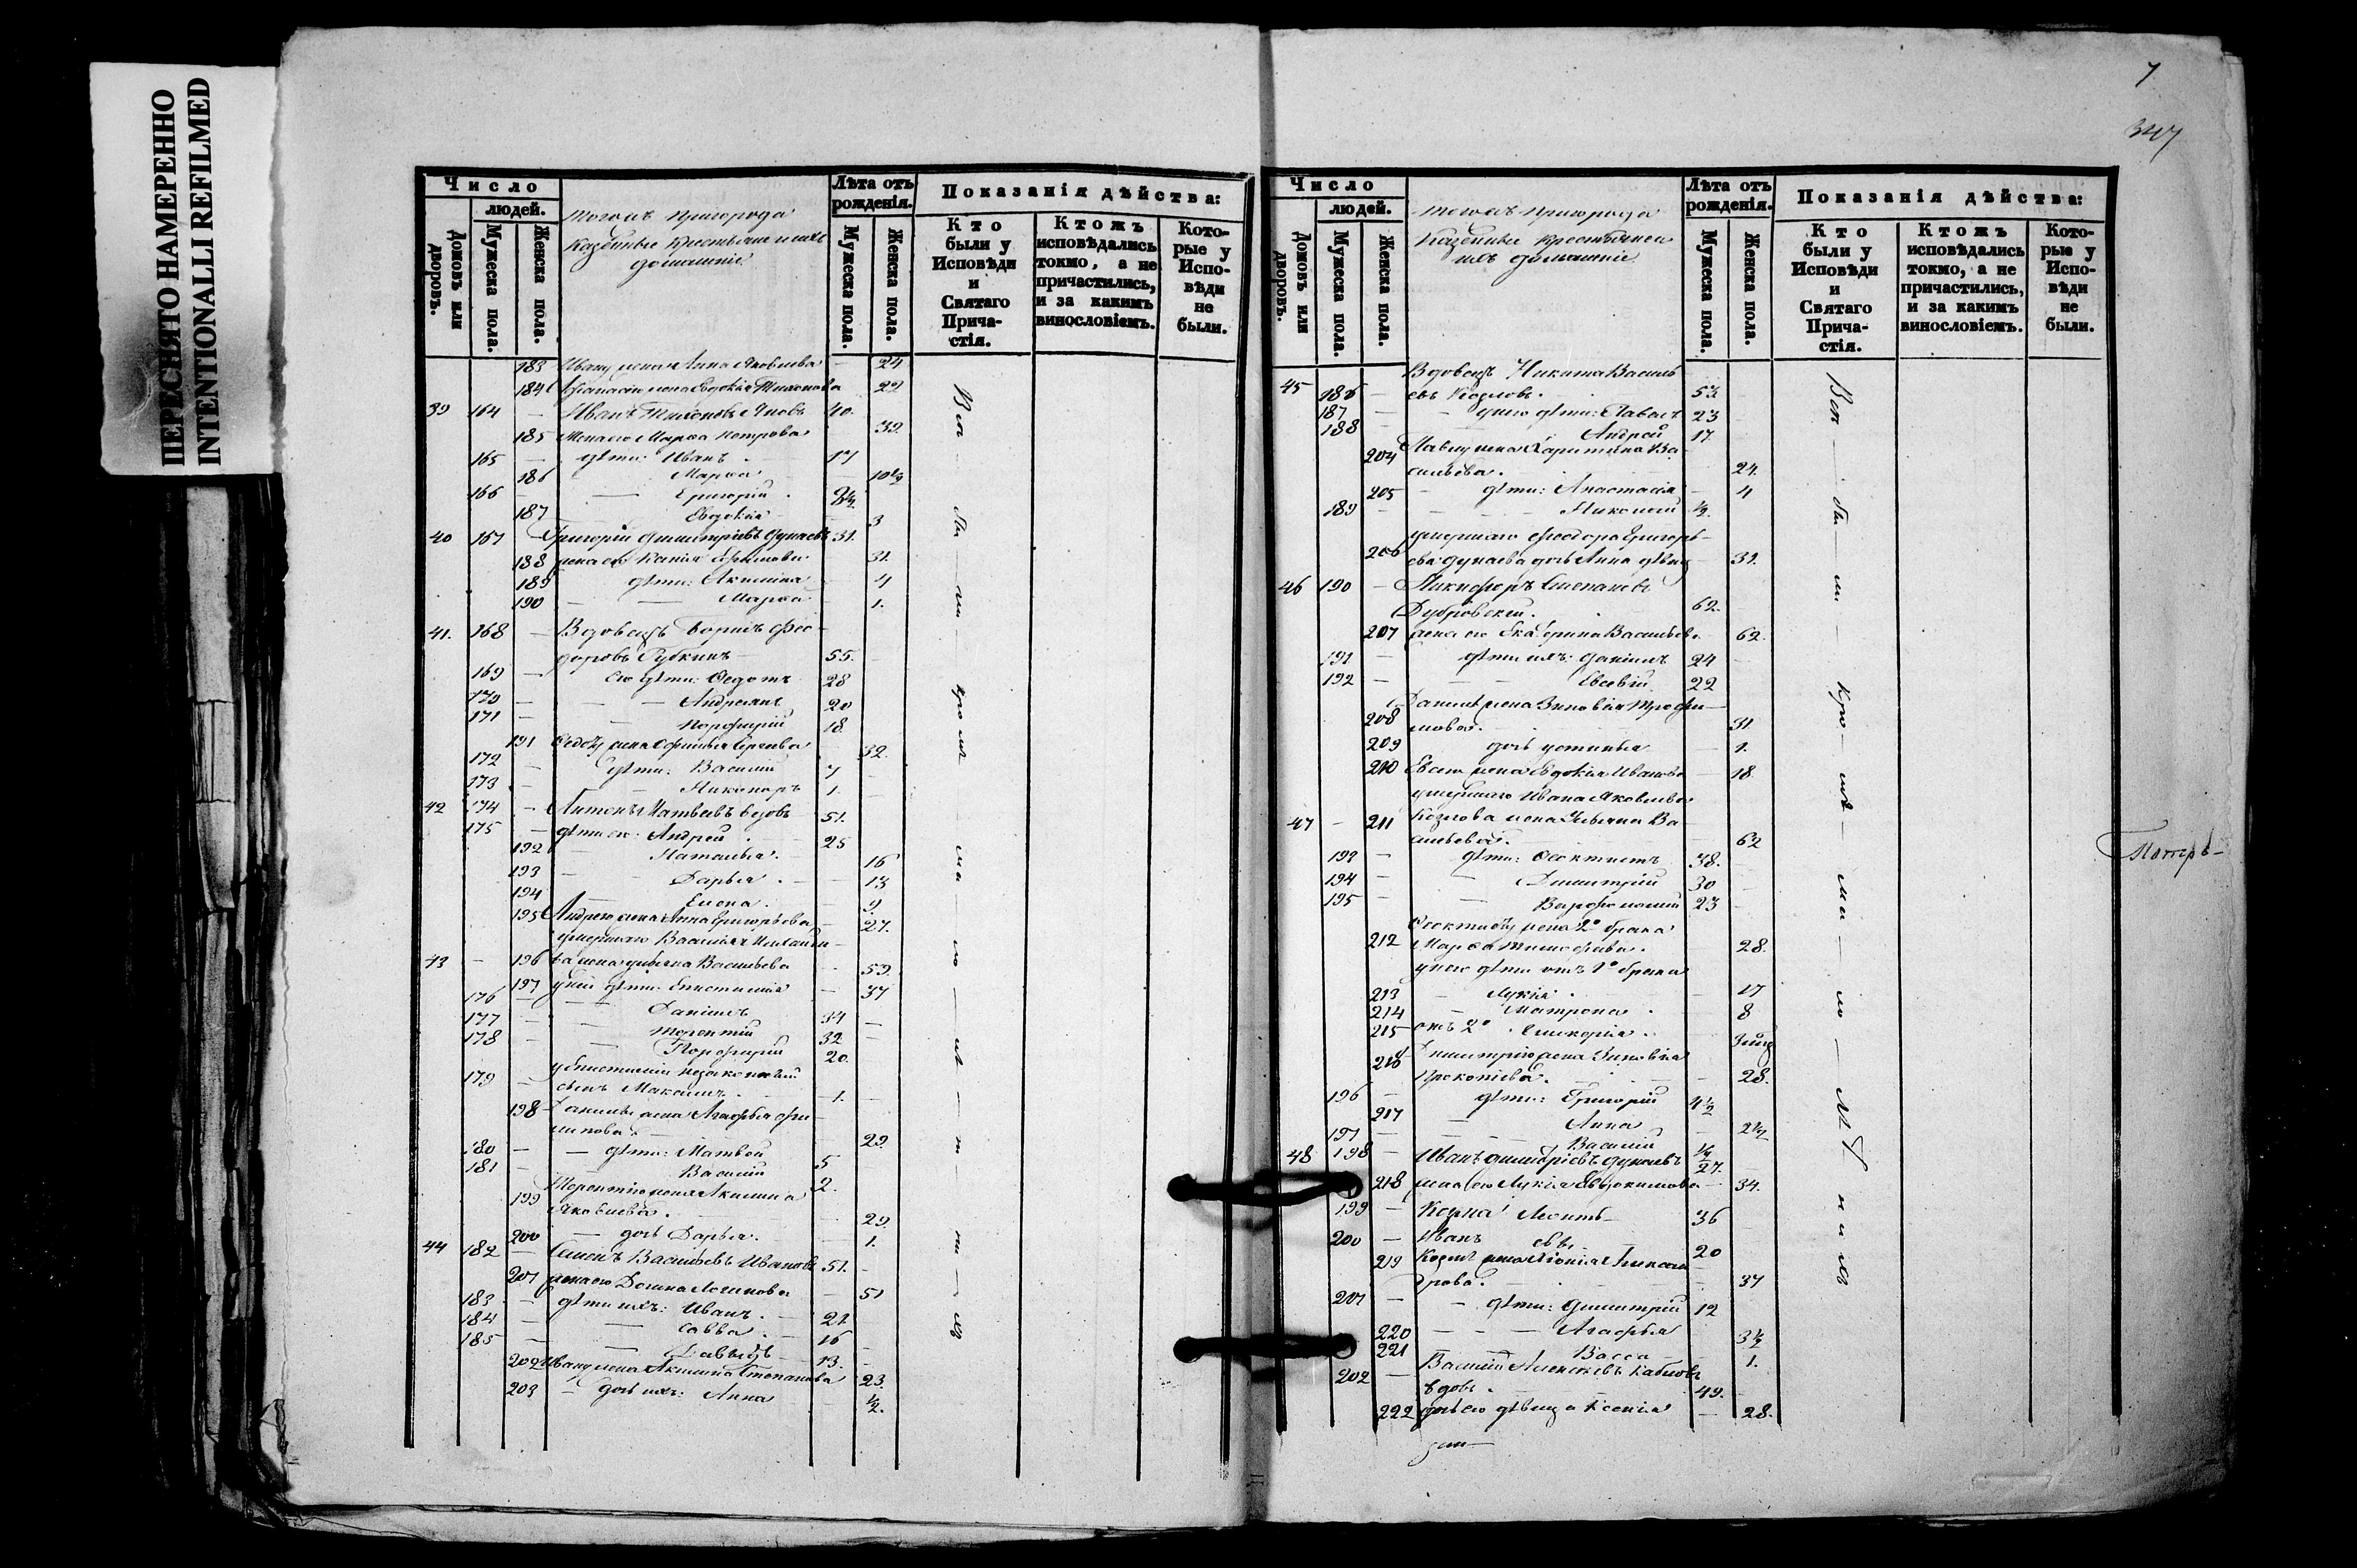 ПЕРЕСНЯТО НАМЕРЕННО
INTENTIONALLI REFILMED
Число
людей.
Домовъ или дворовъ.
Мужеска пола.
Женска пола.
Тогожъ пригорода
Казенные крестьяне и ихъ
домашніе
Лѣта отъ рожденія.
Мужеска пола.
Женска пола.
Показанія дѣйства:
Кто были у Исповѣди и Святаго Причастія.
Ктожъ исповѣдались токмо, а не причастились, и за какимъ винословіемъ.
Которые у Исповѣди не были.
183 Ивану жена Анна Яковлева 24
184 Афанасію жена Евдокія Тихонова 22
39 164 Иванъ Тихоновъ 40.
185 Жена его Марѳа Петрова 39.
165 дѣти: Иванъ 17
186 Марѳа 10½
166 Григорій
187 Евдокія 3
40 167 Григорій Димитріевъ Дунаевъ 31.
188 жена его Ксенія 31.
189 дѣти: Акилина 4
190 Марѳа 1.
41. 168 Вдовецъ Борисъ Фео-
доровъ Губкинъ 55.
169 Его дѣти: Ѳедотъ 28
170 Андреянъ 20
171 Порфирій 18
191 Ѳедоту жена 32.
172 дѣти: Василій 7
173 Никаноръ 1.
42 174 Антонъ Матвѣевъ вдовъ 51.
175 дѣти его: Андрей 25
192 Наталья 16
193 Дарья 13
194 Елена 9
195 Андрею жена Анна Григорьева 27.
умершаго Василья Михайло-
43 196 ва жена Ульяна Васильева 59.
197 у ней дѣти: Епистимія 37
176 Даніилъ 34
177 Терентій 32
178 Порфирій 20.
у Епистиміи незаконный
179 сынъ Максимъ 1.
198 Данилы жена Агафья Фи-
липова 29
180 дѣти: Матвѣй 5
181 Василій 2.
Терентію жена Акилина
199 Яковлева 29
200 дочь Дарья 1.
44 182 Семенъ Васильевъ Ивановъ 51.
201 жена его Домна Логинова 51
183 дѣти ихъ: Иванъ 21
184 Савва 16
185 Давыдъ 13.
202 Ивану жена Акилина Степанова 23.
203 дочь ихъ: Анна ½.
7
347
Число
людей.
Домовъ или дворовъ.
Мужеска пола.
Женска пола.
Тогожъ пригорода
Казенные крестьяне и
ихъ домашніе
Лѣта отъ рожденія.
Мужеска пола.
Женска пола.
Показанія дѣйства:
Кто были у Исповѣди и Святаго Причастія.
Ктожъ исповѣдались токмо, а не причастились, и за какимъ винословіемъ.
Которые у Исповѣди не были.
Вдовецъ Никита Василь-
45 186 евъ Козловъ 53
187 у него дѣти: Павелъ 23
188 Андрей 17.
204 Павлу жена Харитина Ва-
сильева 24.
205 дѣти: Анастасія 4
189 Николай ½.
умершаго Феодора Григорь-
206 ева Дунаева дочь Анна дѣвица 31.
46 190 Никифоръ Степановъ
Дубровскій 62.
207 жена его Екатерина Васильева 62.
191 дѣти ихъ: Даніилъ 24
192 Евсевій 22
Даніилу жена Зиновія Трофи-
208 мова 31
209 дочь Устинья 1.
210 Евсею жена Евдокія Иванова 18
умершаго Ивана Яковлева
47 211 Козлова жена Ульяна Ва-
сильева 62
193 дѣти: Ѳеоктистъ 38.
194 Димитрій 30
195 Варфоломей 23
Ѳеоктисту жена 2го брака
212 Марѳа Тимофеева 28.
у него дѣти отъ 1го брака
213 Лукія 17
214 Матрона 8
215 отъ 2го Гликерія
216 Димитрію жена Зиновія
Прокопіева 28.
196 дѣти: Григорій 4½
217 Анна 2½
197 Василій ½
48 198 Иванъ Димитріевъ Дунаевъ 27.
218 жена его Лукія Евдокимова 34.
199 Козма Леонть- 36
200 Иванъ евы 20
219 Козмѣ жена Ксенія Александ-
рова 37
201 дѣти: Димитрій 12
220 Агафья 3½
221 Васса 1.
202 Василій Алексѣевъ
вдовъ 49.
222 дочь его дѣвица Ксенія 28.